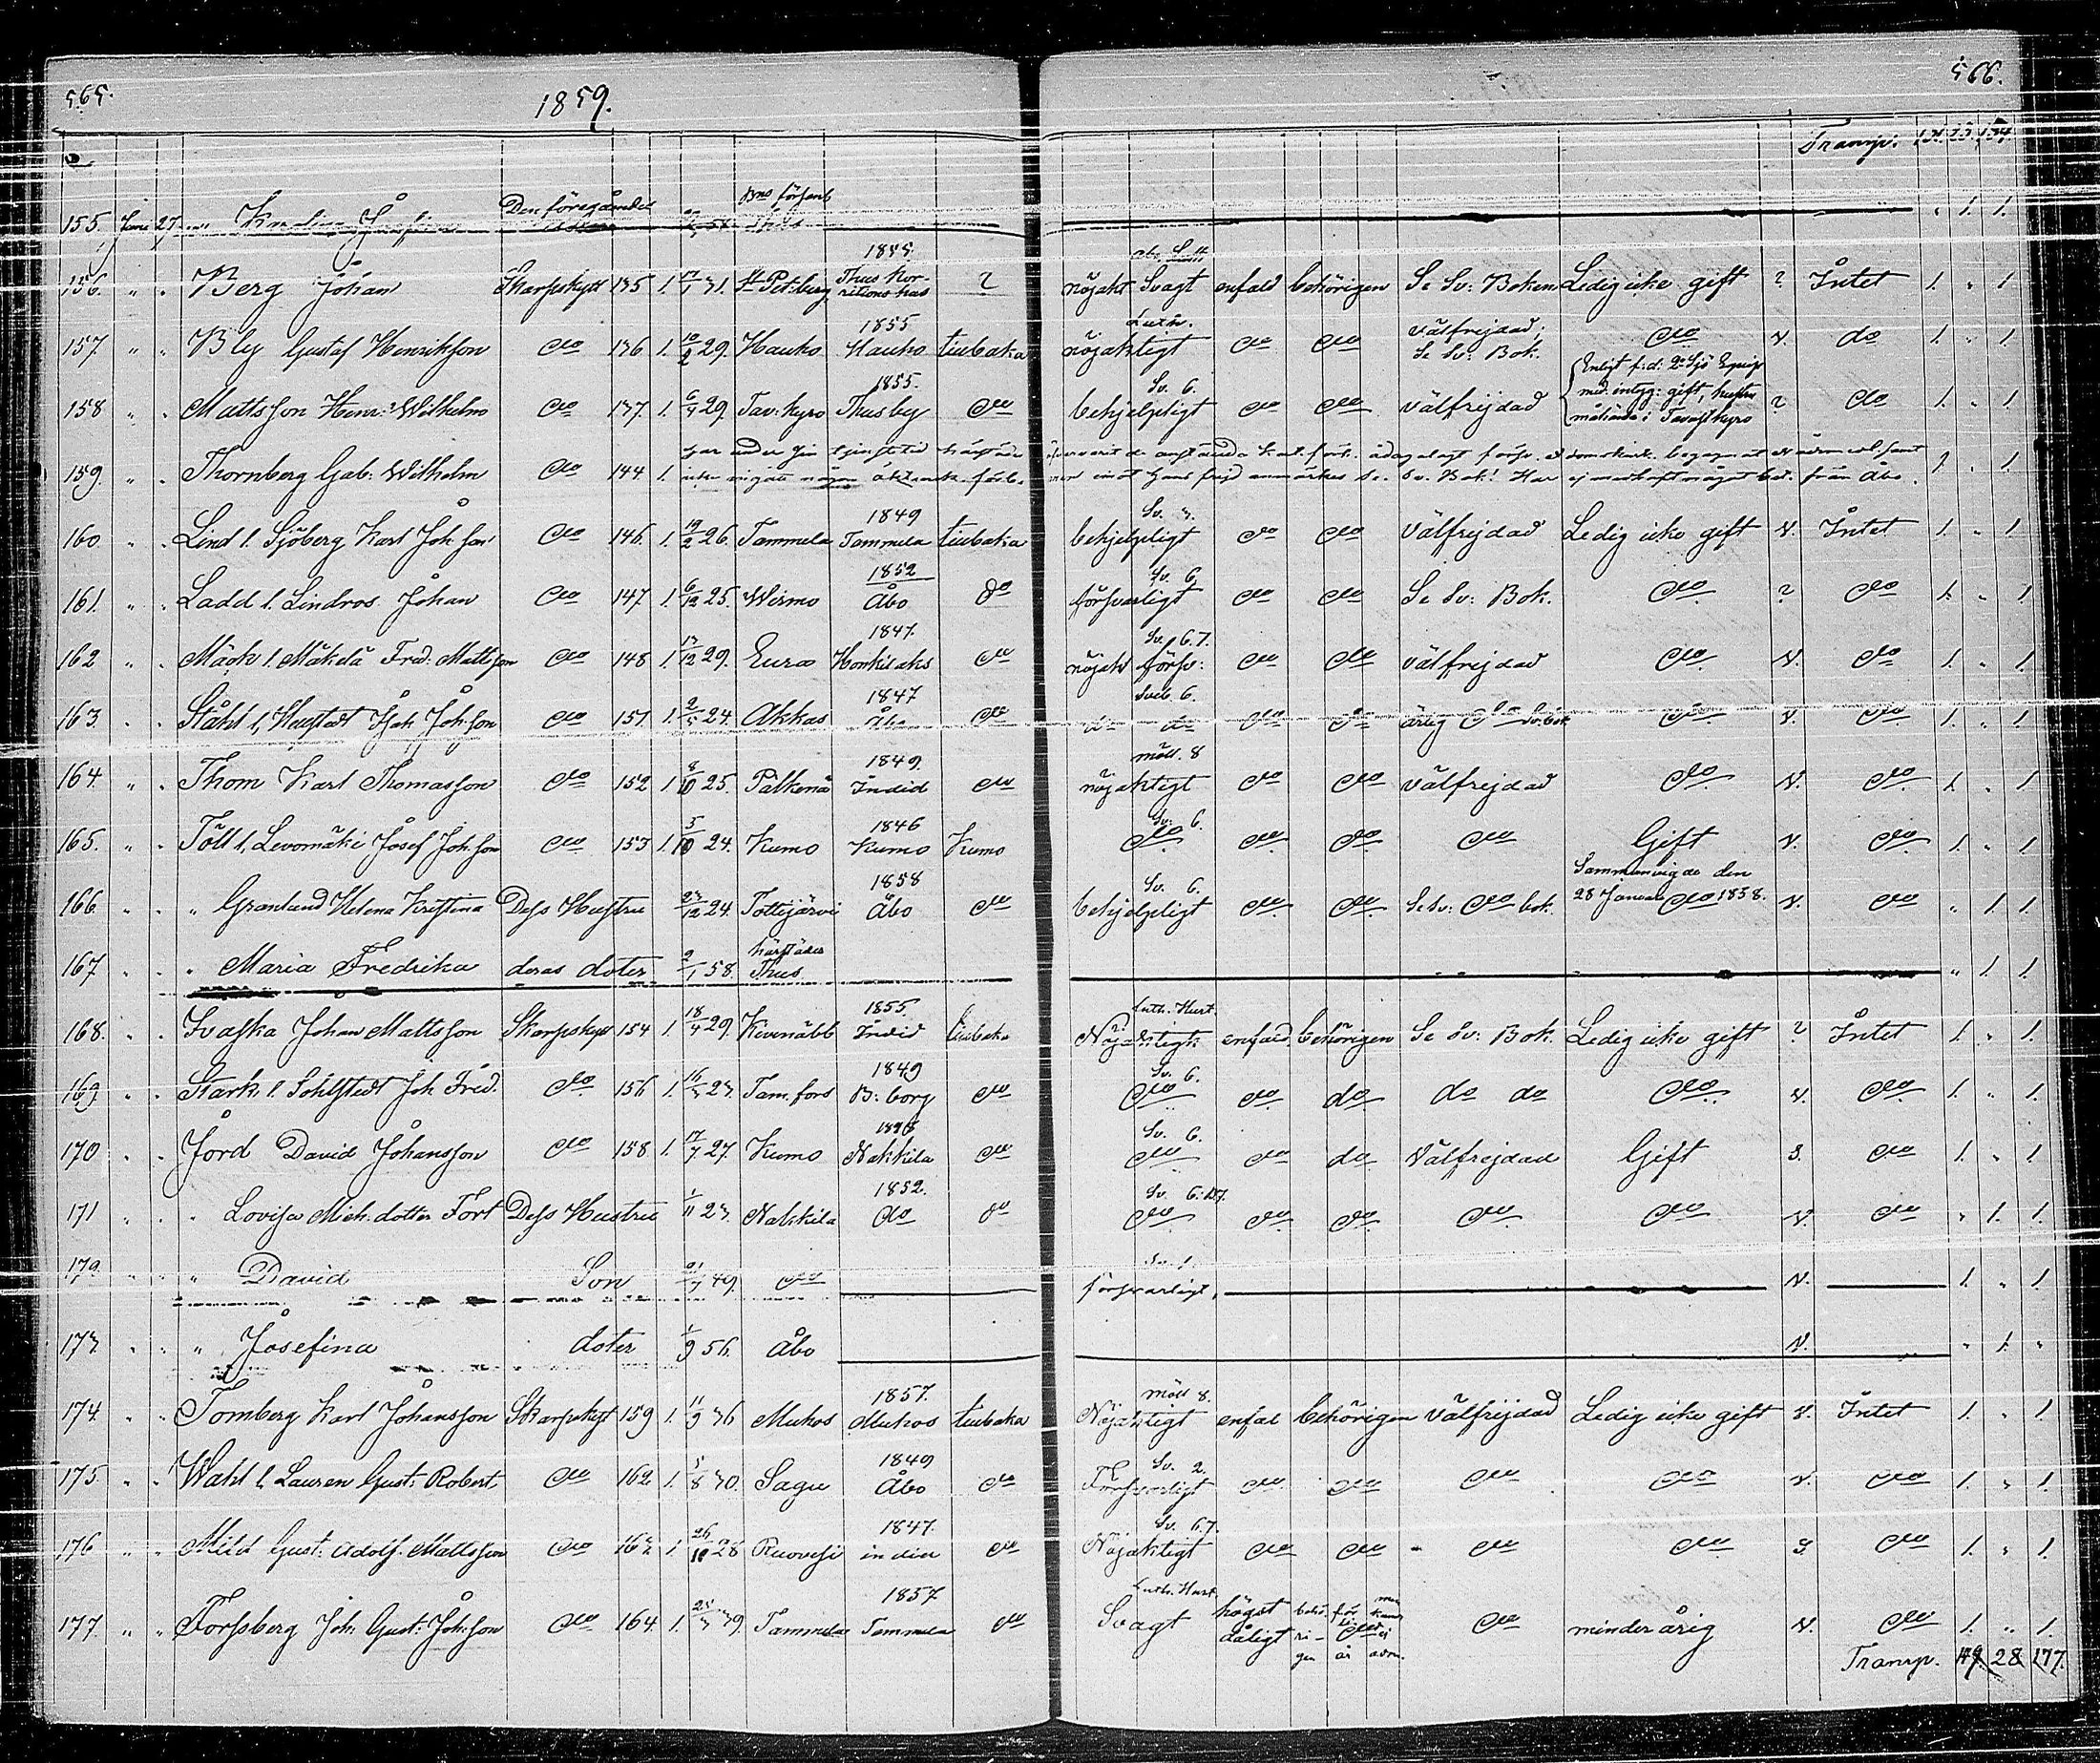 565.
1859.
566.
Transp. 131. 23. 154.
155. Juni 27. Karolina Josefina Den föregåendes " 1. 1.
156. " " Berg Johan Skarpskytt 135 1. 17/1 31. St Petburg 1855. Thus Kor- ? nöjakt Svagt enfald behörigen Se Sv: Boken Ledig icke gift ? Intet 1. " 1
157. " " Bly Gustaf Henrikson do 136 1. 10/2 29. Hauho 1855 Hauho tiubaka Luth. nöjaktigt do do välfrejdad; Se Sv: Bok. do N. do 1. " 1
158 " " Mattsson Henr: Wilhelm do 137. 1. 6/4 29. Tav: kyro 1855. Thusby do Sv. 6. behjelpeligt do do välfrejdad Enligt f:d: 2a Sjö Equip med intyg: gift, hustru i Tavastkyro ? do 1. " 1
159. " " Thornberg Gab: Wilhelm do 144. 1. har under sin tjenstetid härstädes icke ingått någon äktensk. förb. emot hans frejd anmärkes Se. Sv. Bok! Har ej medhaft något bet. från Åbo. 1. " 1
160 " " Lind l. Sjöberg Karl Joh:son do 146. 1. 19/2 26. Tammela 1849 Tammela tiubaka Sv. 3. behjelpeligt do do välfrejdad Ledig icke gift N. Intet 1. " 1
161. " " Ladd l. Lindros Johan do 147 1. 6/12 25. Wirmo 1852 Åbo do Sv. 6, försvarligt do do Se Sv: Bok. do ? do 1. " 1
162 " " Mäök l. Mäkelä Fred: Mattsson do 148 1. 13/12 29. Eura 1847. Honkilaks do Sv. 6.7. nöjakt försv: do do välfrejdad do N. do 1. " 1.
163. " " Ståhl l, Heustedt Isak Joh:son do 151. 1. 2/5 24. Akkas 1847 Åbo do Sveb 6. do do do do ärlig do Sv: bok do N. do 1. " 1
164. " " Thom Karl Thomasson do 152 1 8/10 25. Pälkenä 1849. Indid do möll. 8 nöjaktigt do do välfrejdad do N. do 1. " 1
165. " " Töll l, Levomäki Josef Joh:son do 153 1. 5/10 24. Kumo 1846 Kumo Kumo Sv. 6. do do do do Gift N. do 1. " 1.
166. " " " Granlund Helena Kristina Dess Hustru 23/12 24. Tottijärvi 1858 Åbo do Sv. 6. behjelpeligt do do Se Sv: do bok. Sammanvigde den 28 Januari do 1858. N. do " 1. 1
167 " " " Maria Fredrika deras doter 2/1 58. härstädes Thus " 1. 1.
168. " " Svaska Johan Mattsson Skarpskytt 154 1. 18/4 29. Kivenäbb 1855. Indid tiubaka Luth. Kurt. Nöjaktigt enfald behörigen Se Sv: Bok. Ledig icke gift ? Intet 1. " 1
169. " " Stark l. Sohlstedt Joh Fred. do 156 1. 16/5 23. Tam. fors 1849 B: borg do Sv. 6. do do do do do do N. do 1. " 1.
170 " " Jord David Johansson do 158 1. 17/7 27. Kumo Nakkila do Sv. 6. do do do Välfrejdad Gift S. do 1. " 1
171 " " " Lovisa Mich: dotter Fort Dess Hustru 1/11 23. Nakkila 1852. do do Sv. 6: 7. do do do do do N. do " 1. 1.
172. " " " David Son 21/7 49. do Sv. 1. försvarligt, N. 1. " 1.
173 " " " Josefina doter 1/9 56. Åbo N. " 1. "
174. " " Tomberg Karl Johansson Skarpskyt 159 1. 11/9 36 Muhos 1857. Muhos tiubaka möll 8. Nöjaktigt enfal behörigen välfrejdad Ledig icke gift N. Intet 1. " 1
175. " " Wahl l, Lauren Gust: Robert. do 162. 1. 5/8 30. Sagu 1849 Åbo do Sv. 2. Försvarligt do do do do N. do 1. " 1.
176 " " Mild Gust: Adolf. Mattsson do 163. 1 26/10 28 Ruovesi 1847. indid do Sv. 6.7. Nöjaktigt do do do do S. do 1. " 1.
177. " " Forssberg Joh: Gust: Joh:son do 164. 1. 25/3 39. Tammela 1857 Tammela do Luth. Kurt. Svagt högst dåligt behö- ri- gen do minder årig N. do 1. " 1.
Transp. 149. 28 177.